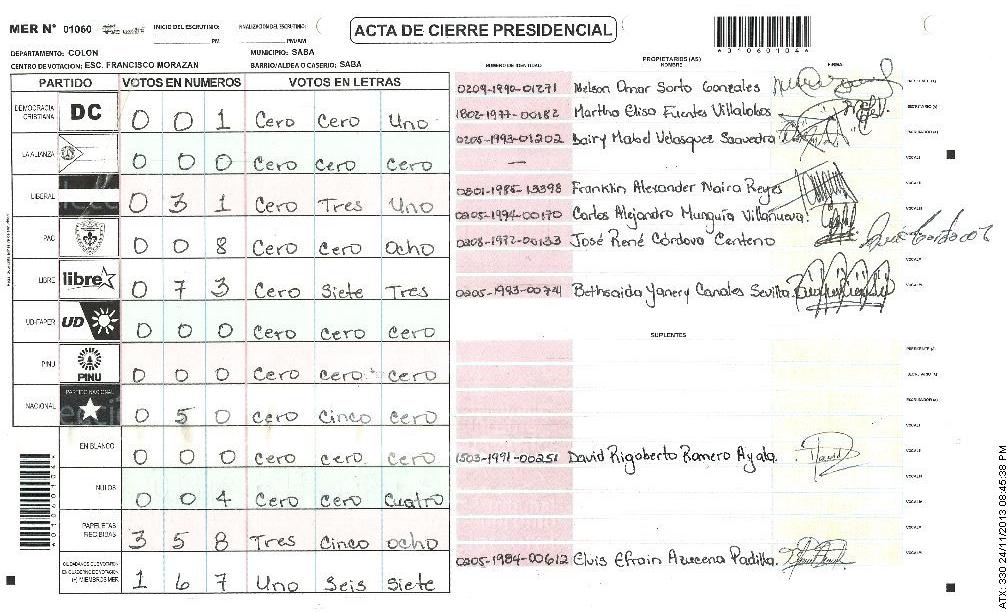 MER N° 01060
INICIO DEL ESCRUTINIO: PM
FINALIZACION DEL ESCRUTINIO: PM/AM
ACTA DE CIERRE PRESIDENCIAL
A01060104A
DEPARTAMENTO: COLON
MUNICIPIO: SABA
CENTRO DE VOTACION: ESC. FRANCISCO MORAZAN
BARRIO/ALDEA O CASERIO: SABA
PARTIDO VOTOS EN NUMEROS VOTOS EN LETRAS
DEMOCRACIA CRISTIANA DC 0 0 1 Cero Cero Uno
LA ALIANZA 0 0 0 Cero Cero Cero
LIBERAL 0 3 1 Cero Tres Uno
PAC 0 0 8 Cero Cero Ocho
LIBRE libre 0 7 3 Cero Siete Tres
UD-FAPER UD 0 0 0 Cero Cero Cero
PINU PINU 0 0 0 Cero Cero Cero
NACIONAL PARTIDO NACIONAL 0 5 0 Cero Cinco Cero
EN BLANCO 0 0 0 Cero Cero Cero
NULOS 0 0 4 Cero Cero Cuatro
PAPELETAS RECIBIDAS 3 5 8 Tres Cinco Ocho
(+) MIEMBROS MER 1 6 7 Uno Seis Siete
PROPIETARIOS (AS)
NUMERO DE IDENTIDAD NOMBRE FIRMA
0209-1990-01271 Nelson Omar Sorto Gonzales
1802-1977-00182 Martha Elisa Fuentes Villalobos
0205-1993-01202 Bairy Mabel Velasquez Saavedra
—
0801-1985-13398 Franklin Alexander Naira Reyes
0205-1994-00170 Carlos Alejandro Munguia Villanueva.
0208-1972-00133 José René Córdova Centeno
0205-1993-00741 Bethsaida Yanery Canales Sevilla.
SUPLENTES
1503-1991-00251 David Rigoberto Romero Ayala.
0205-1984-00612 Elvis Efrain Azucena Padilla.
A01060104A
ATX: 330 24/11/2013 08:45:38 PM